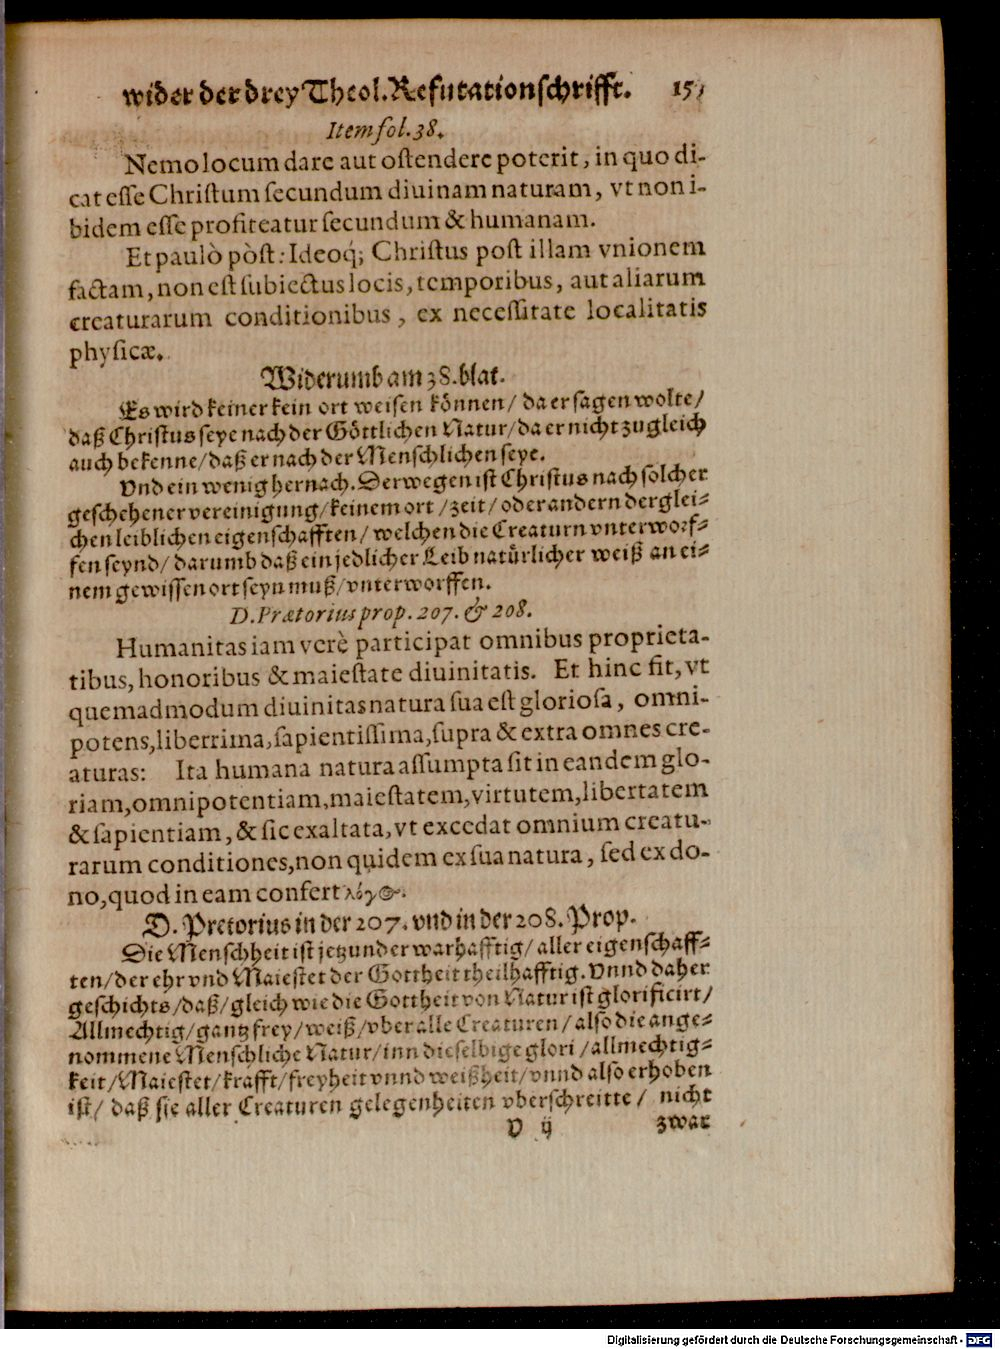 wider der drey Theol. Refutationschrifft. 15
Item fol. 38.
Nemo locum dare aut ostendere poterit, in quo di-
cat esse Christum secundum diuinam naturam, vt non i-
bidem esse profiteatur secundum & humanam.
Et paulò pòst: Ideoq́; Christus post illam vnionem
factam, non est subiectus locis, temporibus, aut aliarum
creaturarum conditionibus, ex necessitate localitatis
physicæ.
Widerumb am 38. blat.
Es wird keiner kein ort weisen können / da er sagen wolte /
daß Christus seye nach der Göttlichen Natur / da er nicht zugleich
auch bekenne / daß er nach der Menschlichen seye.
Vnd ein wenig hernach. Derwegen ist Christus nach solcher
geschehener vereinigung / keinem ort / zeit / oder andern derglei-
chen leiblichen eigenschafften / welchen die Creaturn vnterworf-
fen seynd / darumb daß ein jedlicher Leib natürlicher weiß an ei-
nem gewissen ort seyn muß / vnterworffen.
D. Prætorius prop. 207. & 208.
Humanitas iam verè participat omnibus proprieta-
tibus, honoribus & maiestate diuinitatis. Et hinc fit, vt
quemadmodum diuinitas natura sua est gloriosa, omni-
potens, liberrima, sapientissima, supra & extra omnes cre-
aturas: Ita humana natura assumpta sit in eandem glo-
riam, omnipotentiam, maiestatem, virtutem, libertatem
& sapientiam, & sic exaltata, vt excedat omnium creatu-
rarum conditiones, non quidem ex sua natura, sed ex do-
no, quod in eam confert λόγος.
D. Pretorius in der 207. vnd in der 208. Prop.
Die Menschheit ist jetzunder warhafftig / aller eigenschaff-
ten / der ehr vnd Maiestet der Gottheit theilhafftig. Vnnd daher
geschichts / daß / gleich wie die Gottheit von Natur ist glorificirt /
Allmechtig / gantz frey / weiß / vber alle Creaturen / also die ange-
nommene Menschliche Natur / inn dieselbige glori / allmechtig-
keit / Maiestet / krafft / freyheit vnnd weißheit / vnnd also erhoben
ist / daß sie aller Creaturen gelegenheiten vberschreitte / nicht
V ij zwar
Digitalisierung gefördert durch die Deutsche Forschungsgemeinschaft - DFG